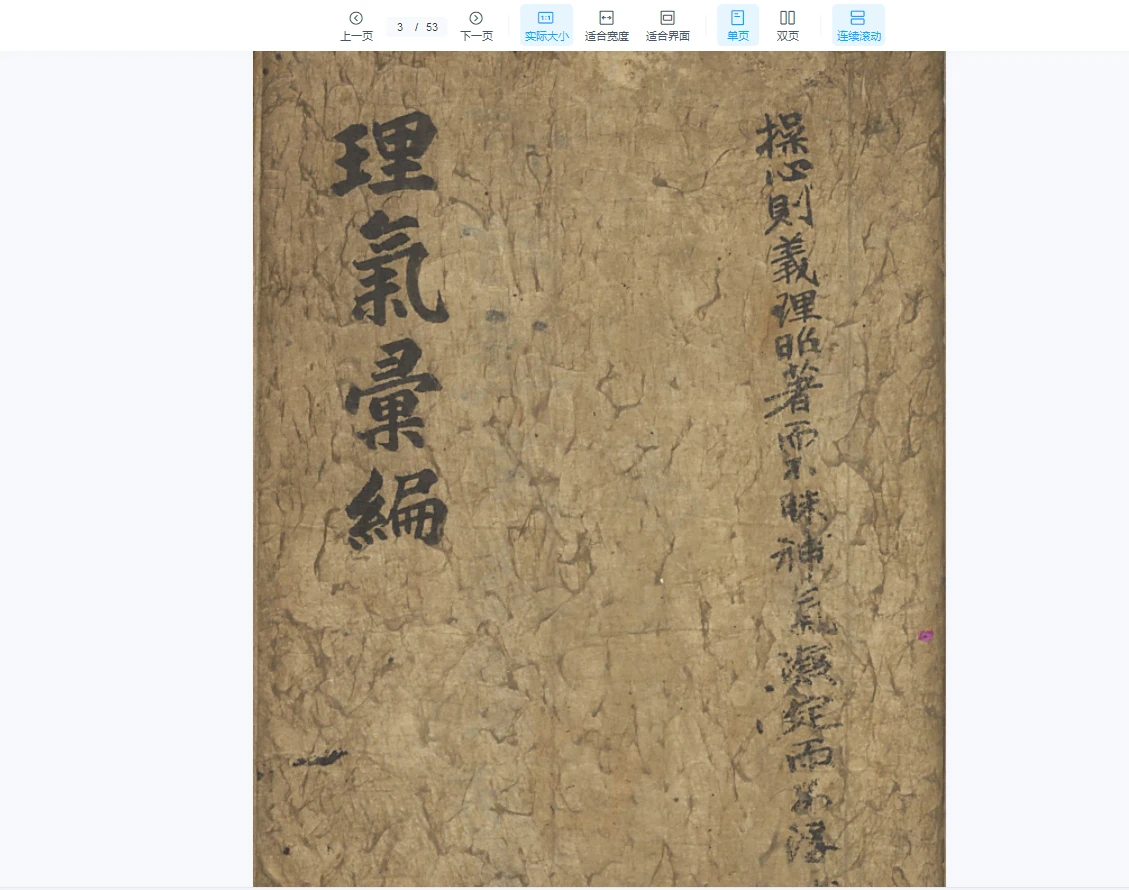 上一页
3 / 53
下一页
实际大小
适合宽度
适合界面
单页
双页
连续滚动
操心則義理昭著而不昧神氣凝定而不浮
理氣彙編
一